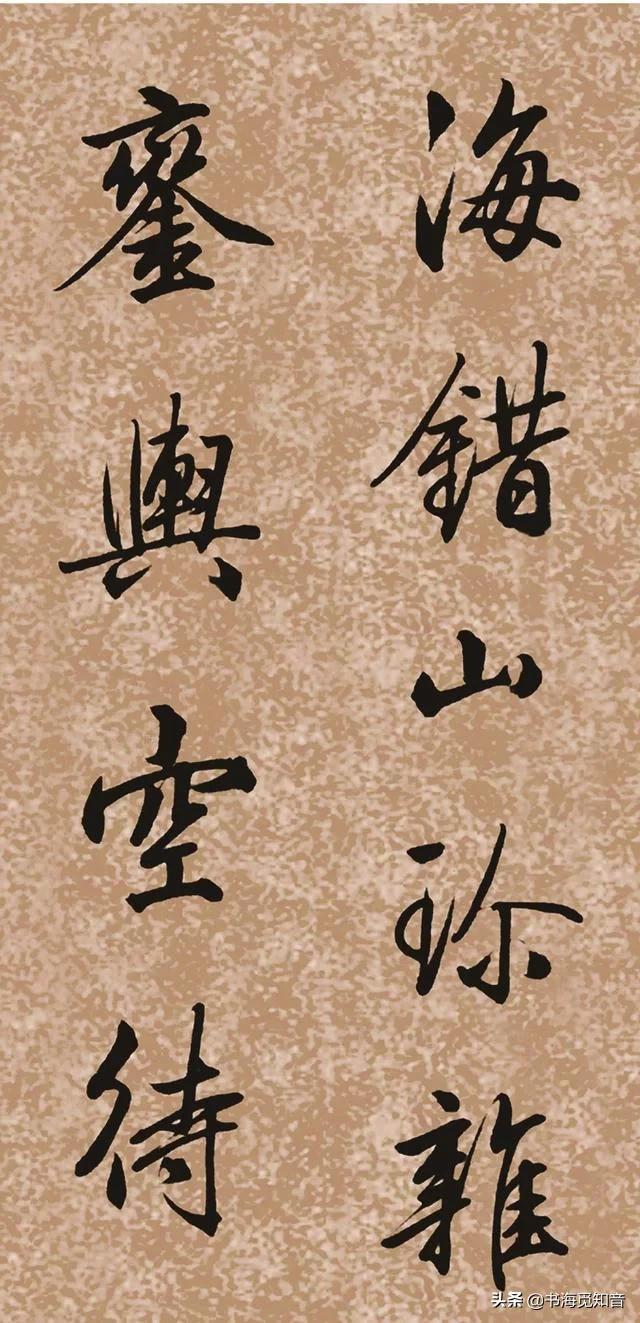 海錯山珍雜
鑾輿空待
头条 @书海觅知音